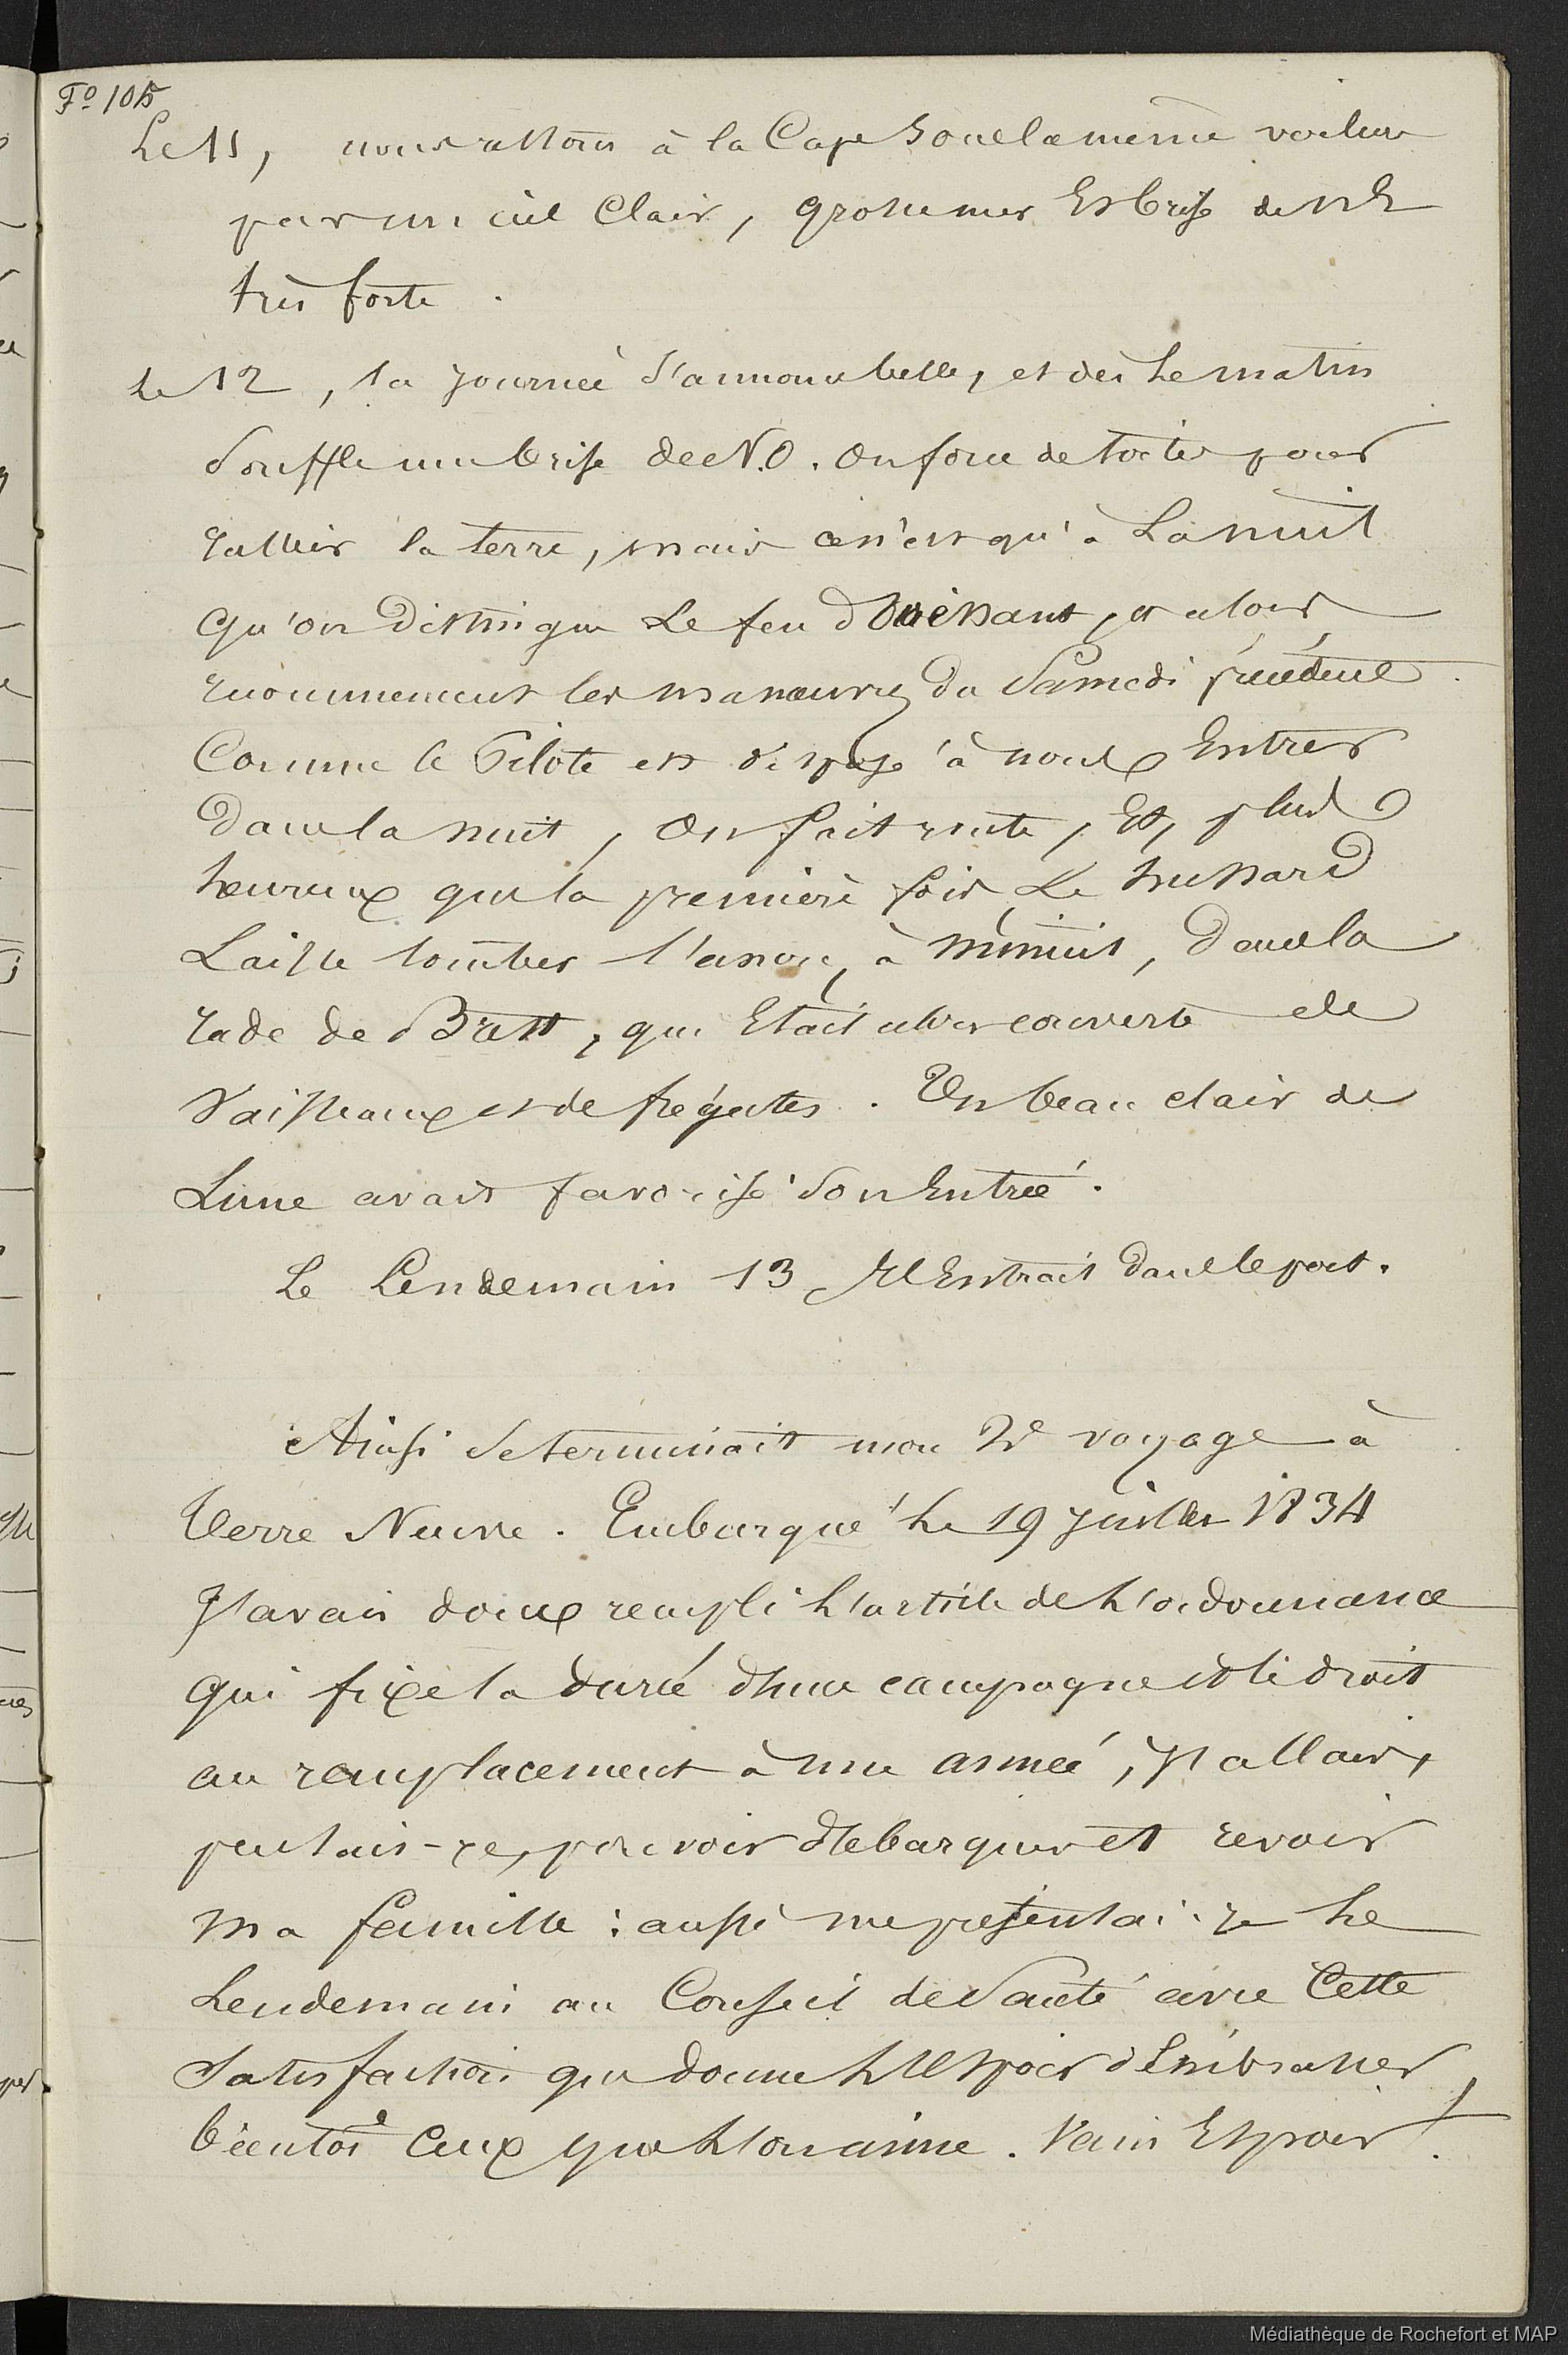 Fº 105
Le 11, nous restons à la Cape sous la même voilure
par un ciel Clair, grosse mer Et brise de NE
très forte.
Le 12, la journée s'annonce belle, et dès Le matin
Souffle une brise de N.O. On force de toile pour
rallier la terre, mais ce n'est qu'à La nuit
Qu'on Distingue Le feu d'Ouessant, et alors
recommencent les manœuvres Du Samedi précédent.
Comme le Pilote est disposé à nous Entrer
Dans la nuit, On fait route, Et, plus
heureux que la première fois, Le hussard
Laisse tomber l'ancre, à minuit, Dans la
rade de Brest, qui Etait alors couverte de
Vaisseaux et de frégates. Un beau clair de
Lune avait favorisé son Entrée.
Le Lendemain 13 Il Entrait Dans le port.
Ainsi se terminait mon 2e voyage à
Terre Neuve. Embarqué le 19 juillet 1834
J'avais donc rempli L'article de L'ordonnance
Qui fixe la Durée d'une campagne et le droit
au remplacement à une année, J'allais,
pensais-je, pouvoir débarquer et revoir
Ma famille : aussi me présentai-je Le
Lendemain au Conseil de Santé avec Cette
Satisfaction que donne L'Espoir d'Embrasser
bientôt Ceux que L'on aime. Vain Espoir !
Médiathèque de Rochefort et MAP